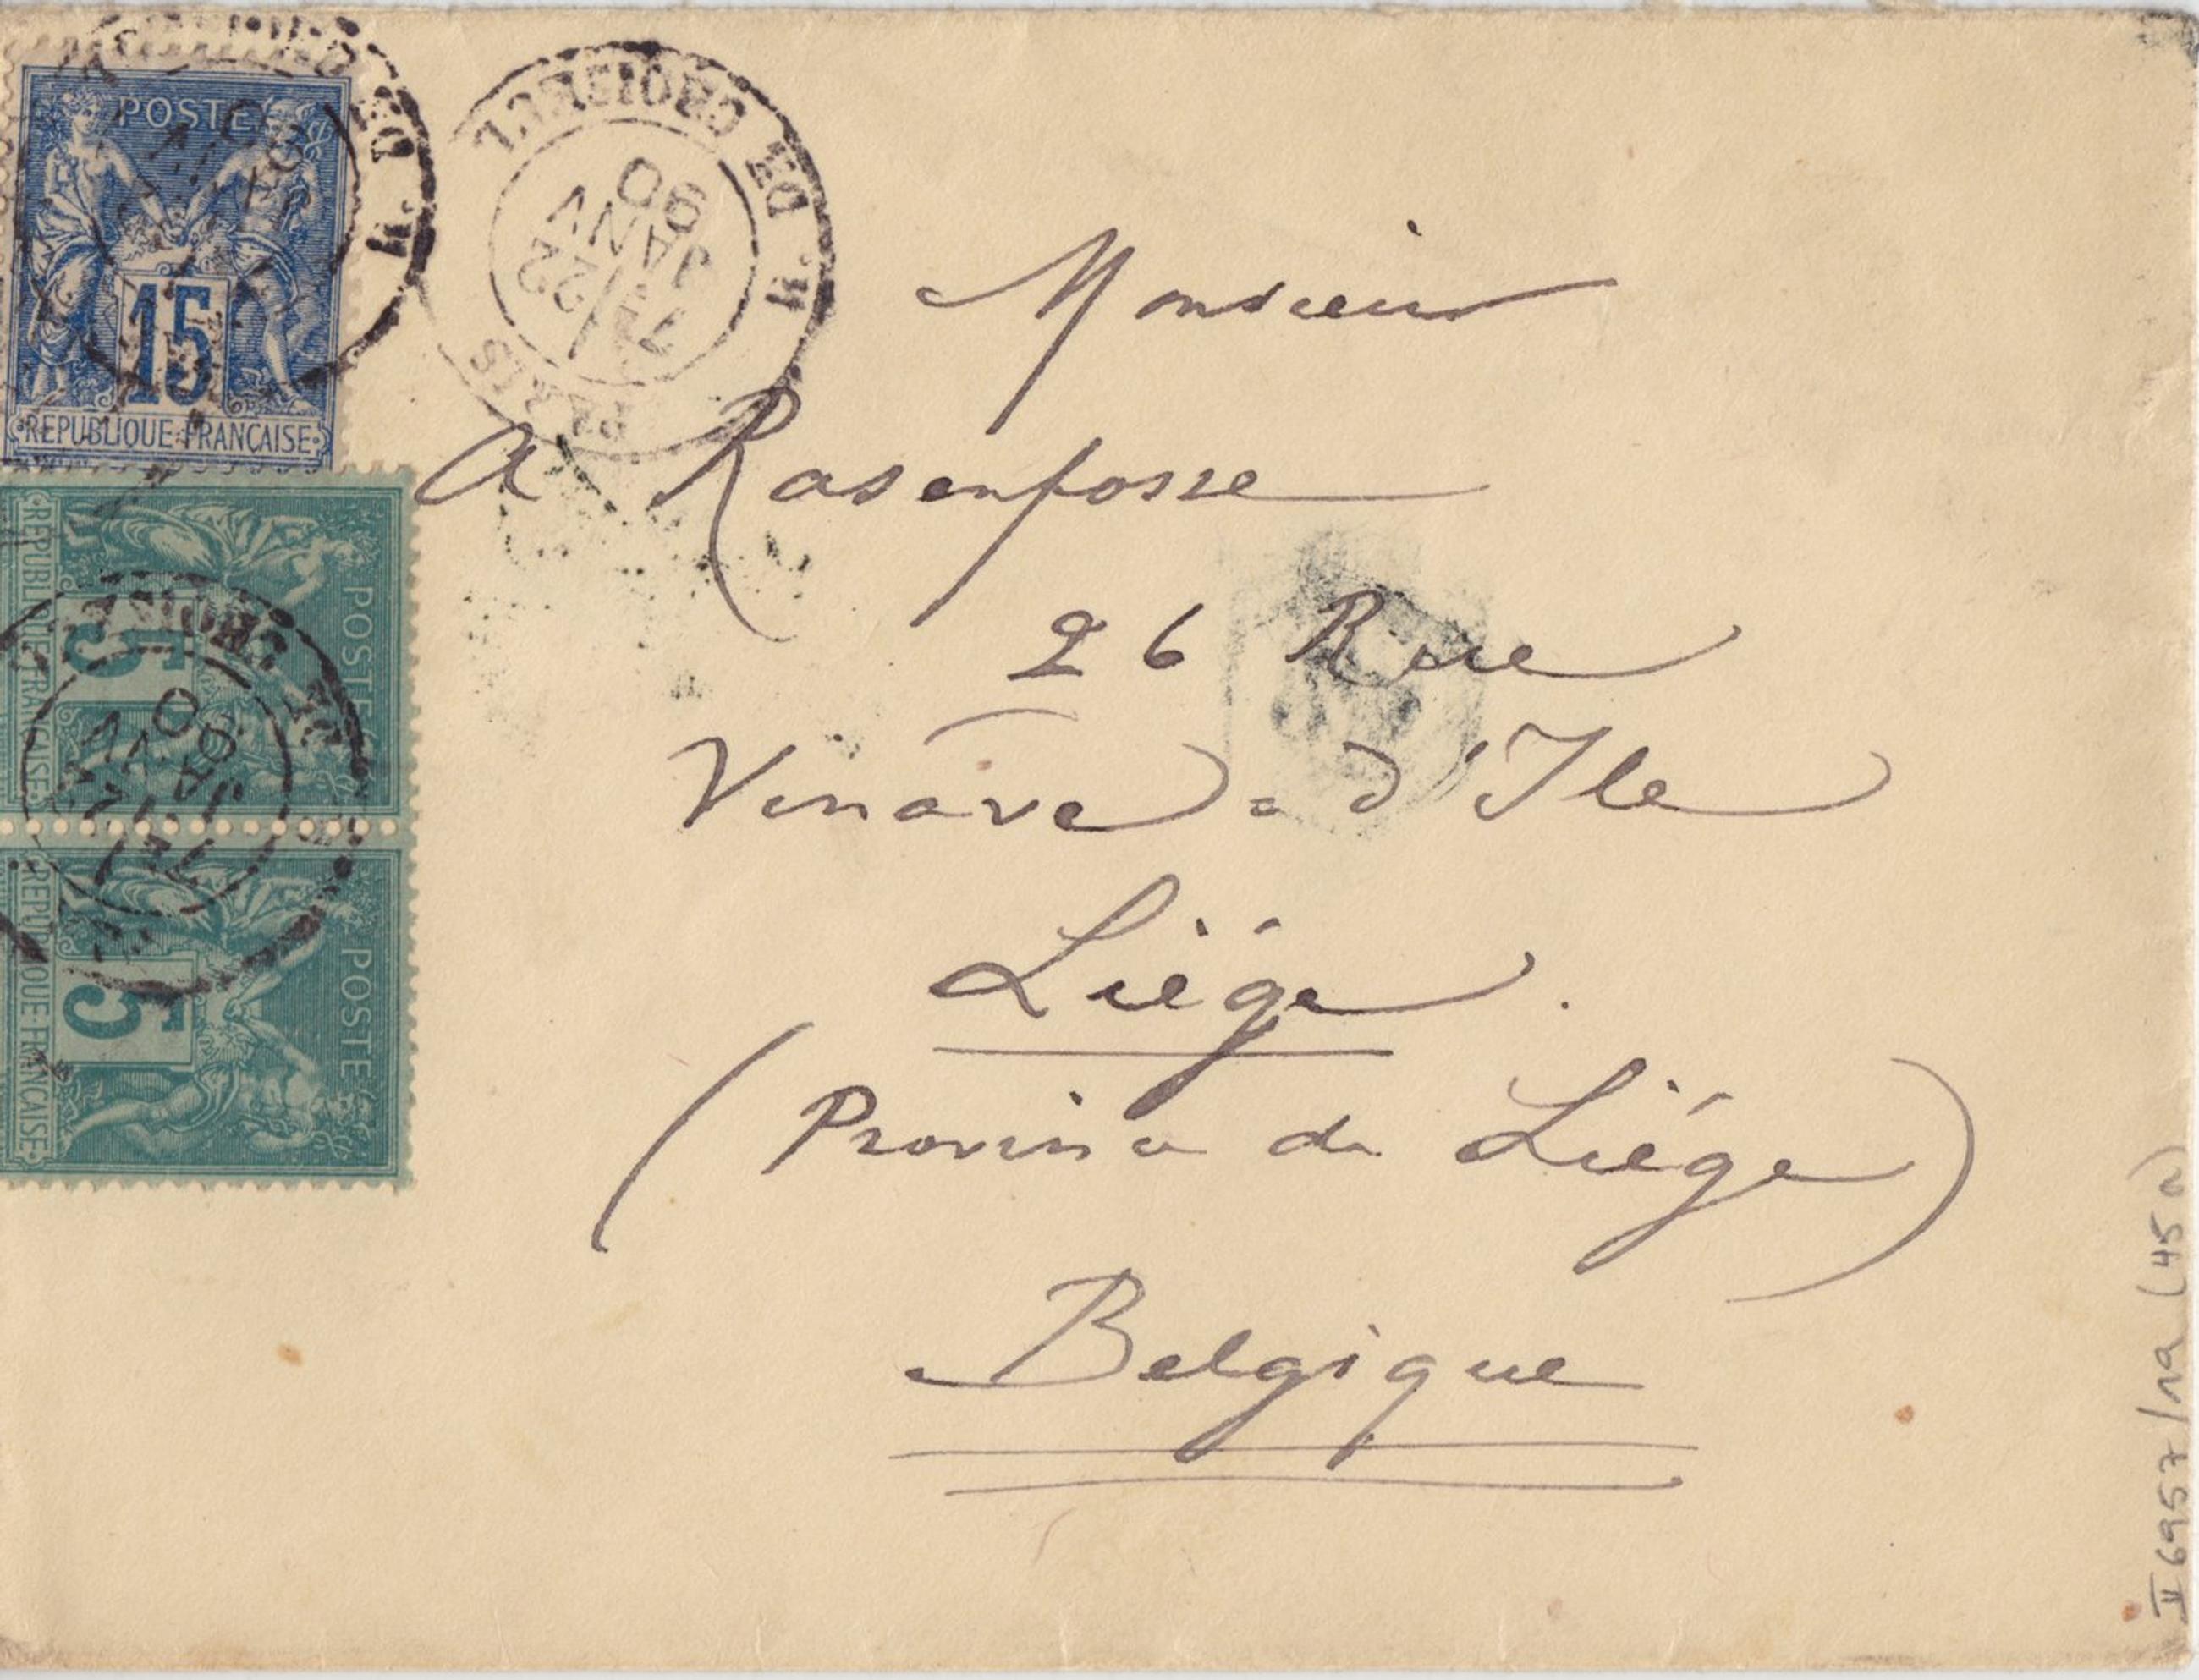 POSTE
15
REPUBLIQUE FRANÇAISE
R. DE CROISSY
PARIS
7E/22
JANV
90
POSTE
5
REPUBLIQUE FRANÇAISE
POSTE
5
REPUBLIQUE FRANÇAISE
Monsieur
A Rasenfosse
26 Rue
Vinave-d'Ile
Liége.
(Province de Liége)
Belgique
II 6957/19a (45a)